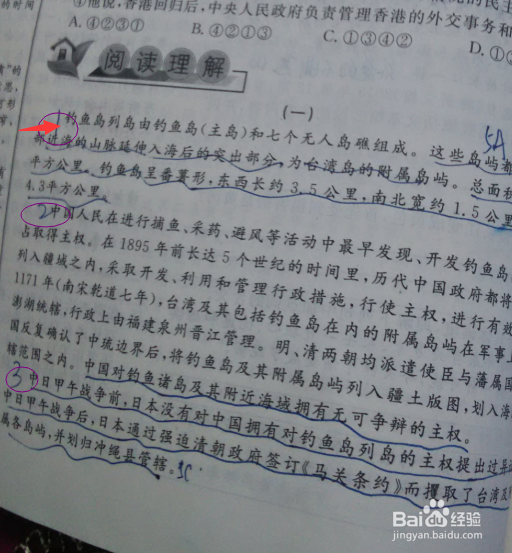 的时间
④他说,香港回归后,中央人民政府负责管理香港的外交事务和
A. ④②③① B. ④②①③ C. ①③④② D. ①
阅读理解
(一)
1钓鱼岛列岛由钓鱼岛(主岛)和七个无人岛礁组成。这些岛屿都
5A
部近海的山脉延伸入海后的突出部分,为台湾岛的附属岛屿。总面积
平方公里。钓鱼岛呈番薯形,东西长约3.5公里,南北宽约1.5公里
4.3平方公里。
2中国人民在进行捕鱼、采药、避风等活动中最早发现、开发钓鱼岛
占取得主权。在1895年前长达5个世纪的时间里,历代中国政府都将
列入疆域之内,采取开发、利用和管理行政措施,行使主权,进行有效
1171年(南宋乾道七年),台湾及其包括钓鱼岛在内的附属岛屿在军事上
澎湖统辖,行政上由福建泉州晋江管理。明、清两朝均派遣使臣与藩属国
国反复确认了中琉边界后,将钓鱼岛及其附属岛屿列入疆土版图,划入海
辖范围之内。中国对钓鱼诸岛及其附近海域拥有无可争辩的主权。
3中日甲午战争前,日本没有对中国拥有对钓鱼岛列岛的主权提出过异议
中日甲午战争后,日本通过强迫清朝政府签订《马关条约》而攫取了台湾及
属各岛屿,并划归冲绳县管辖。3C
Baidu经验
jingyan.baidu.com